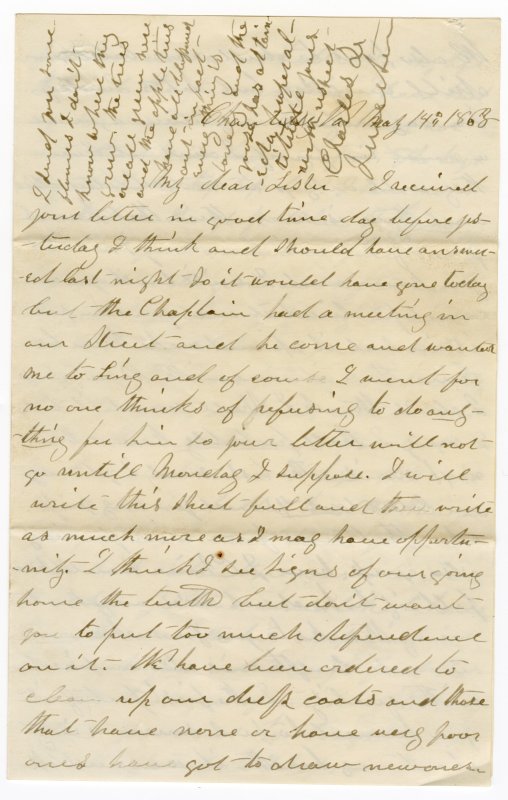 May 14th 1863
My dear Sister I received
your letter in good time day before yes-
terday I think and should have answer-
ed last night so it would have gone today
but the Chaplain had a meeting in
our Street and he come and wanted
me to Sing and of course I went for
no one thinks of refusing to do any-
thing for him so your letter will not
go untill Monday I suppose. I will
write this sheet full and then write
as much more as I may have opportu-
nity. I think I see signs of our going
home the tenth but don't want
you to put too much dependence
on it. We have been ordered to
clean up our dress coats and those
that have none or have very poor
ones have got to draw new ones
I send you some
flowers I don't
know where they
grew the trees
are green here
and the apple trees
have all blossomed
out
every thing is
the
most